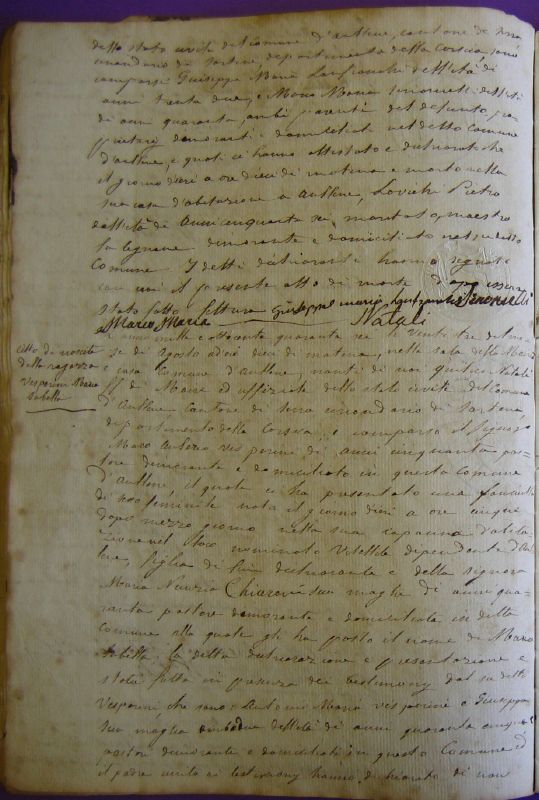 dello stato civile del comune d'aullene, cantone di serra
circondario di Sartene, dipartimento della Corsica, sono
comparsi Giuseppe Maria Lanfranchi dell'età di
anni trenta due, e Marco Maria dell'età
di anni quaranta, ambi parenti del defunto, pro
pietari dimoranti e domiciliati nel detto comune
d'aullene, e quali ci hanno attestato e dichiarato che
il giorno d'ieri a ore dieci di matina e morto nella
sua casa d'abitazione a aullene, Pietro
dell'età di anni cinquanta sei, maritato, maestro
legname dimorante e domiciliato nel suddetto
Comune I detti dichiaranti hanno segnato
con noi il presente atto di morte dopo essern
stato fatto lettura giuseppe maria lanfranchi
Marco Maria Natali
L'anno mille e ottocento quaranta sei il venti tre del me
se di agosto ad ore dieci di matina, nella sala della Maria
e casa Comune d'Aullene, nanti di noi Natali
di Maire ed uffiziale dello stato civile del Comune
d'Aullene cantone di serra circondario di Sartene
dipartimento della Corsica e comparso il signor
Marco Vesperini di anni cinquanta pas
tore dimorante e domiciliato in questo Comune
d'aullene il quale ci ha presentato una fanciulla
di sesso feminile nata il giorno d'ieri a ore cinque
dopo mezzo giorno nella sua capanna d'abita
zione nel loco nominato dipendente d'aul
lene, figlia di lui dichiarante e della signora
Maria Nunzia Chiaroni sua moglie di anni qua
ranta pastore dimorante e domiciliata in detto
Comune alla quale gli ha posto il nome di Maria
Isabella la detta dichiarazione e presentazione e
stata fatta in presenza dei testimony dal su detto
Vesperini che sono Antonio Maria Vesperini e Giuseppe
ambedue dell'età di anni quaranta cinque
pastori dimorante e domiciliati in questo Comune ed
il padre unito ai testimony hanno dichiarato di non
Atto di nascita
della ragazza
Vesperini Maria
Isabella